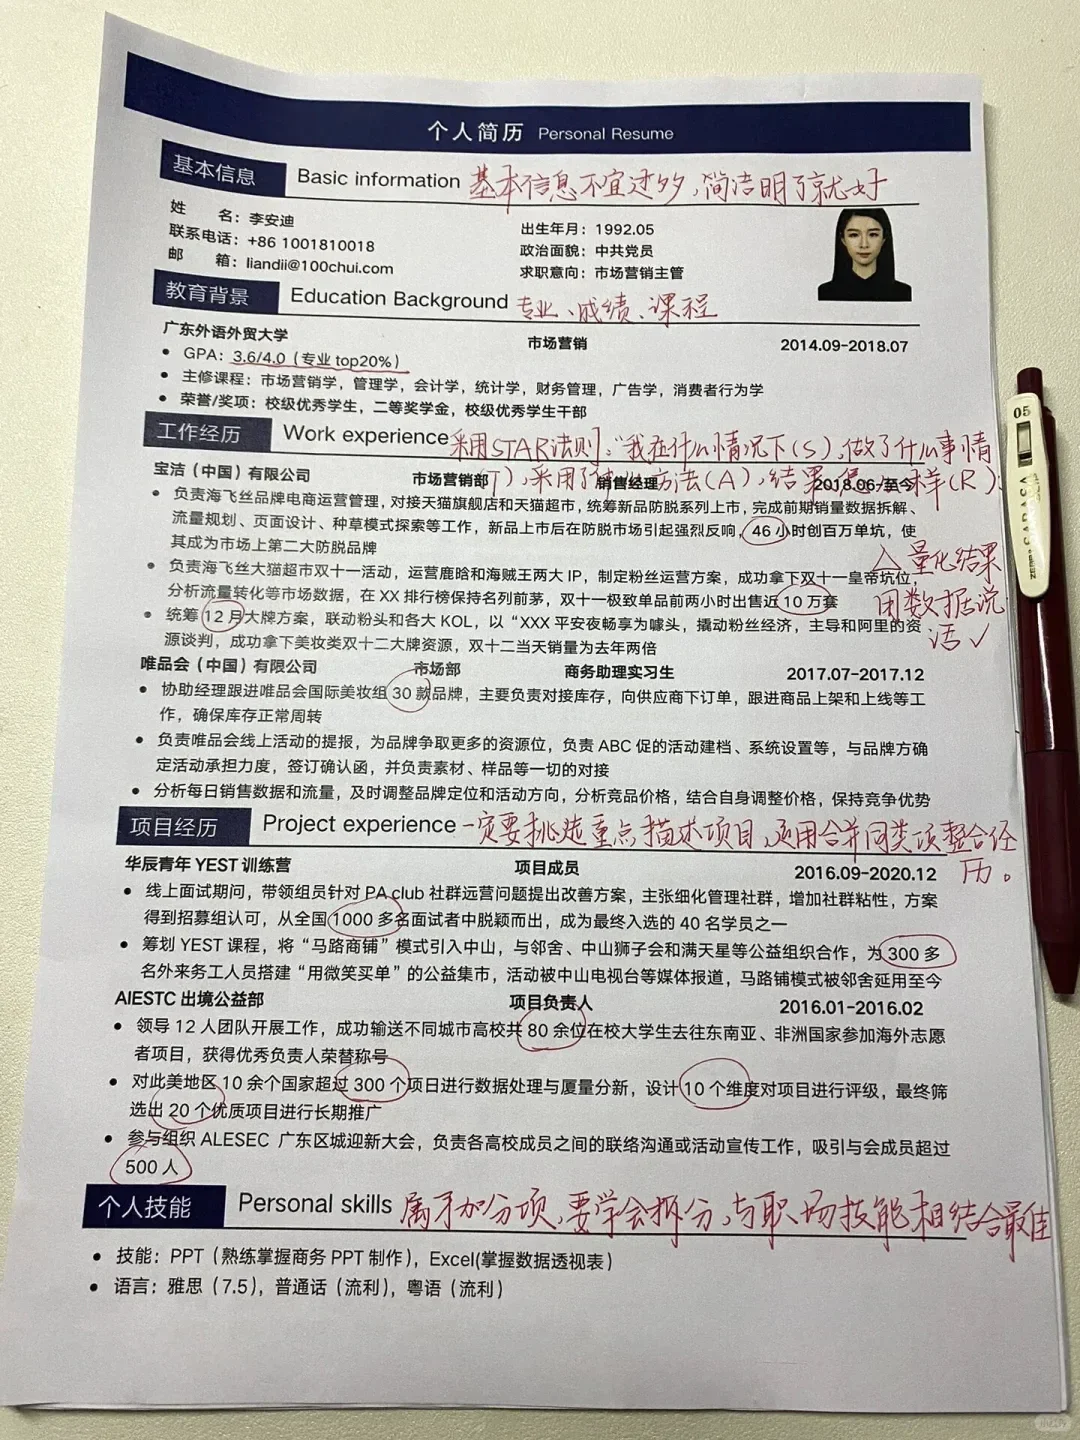 个人简历 Personal Resume
基本信息 Basic information 基本信息不宜过多,简洁明了就好
姓 名:李安迪 出生年月:1992.05
联系电话:+86 1001810018 政治面貌:中共党员
邮 箱:liandii@100chui.com 求职意向:市场营销主管
教育背景 Education Background 专业、成绩、课程
广东外语外贸大学 市场营销 2014.09-2018.07
• GPA:3.6/4.0(专业 top20%)
• 主修课程:市场营销学,管理学,会计学,统计学,财务管理,广告学,消费者行为学
• 荣誉/奖项:校级优秀学生,二等奖学金,校级优秀学生干部
工作经历 Work experience 采用STAR法则:“我在什么情况下(S),做了什么事情
(T),采用了什么方法(A),结果怎么样(R)
宝洁(中国)有限公司 市场营销部 销售经理 2018.06-至今
• 负责海飞丝品牌电商运营管理,对接天猫旗舰店和天猫超市,统筹新品防脱系列上市,完成前期销量数据拆解、
流量规划、页面设计、种草模式探索等工作,新品上市后在防脱市场引起强烈反响,46 小时创百万单坑,使
其成为市场上第二大防脱品牌
△量化结果
用数据说
话✓
• 负责海飞丝大猫超市双十一活动,运营鹿晗和海贼王两大 IP,制定粉丝运营方案,成功拿下双十一皇帝坑位,
分析流量转化等市场数据,在 XX 排行榜保持名列前茅,双十一极致单品前两小时出售近 10 万套
• 统筹 12 月大牌方案,联动粉头和各大 KOL,以“XXX 平安夜畅享为噱头,撬动粉丝经济,主导和阿里的资
源谈判,成功拿下美妆类双十二大牌资源,双十二当天销量为去年两倍
唯品会(中国)有限公司 市场部 商务助理实习生 2017.07-2017.12
• 协助经理跟进唯品会国际美妆组 30 款品牌,主要负责对接库存,向供应商下订单,跟进商品上架和上线等工
作,确保库存正常周转
• 负责唯品会线上活动的提报,为品牌争取更多的资源位,负责 ABC 促的活动建档、系统设置等,与品牌方确
定活动承担力度,签订确认函,并负责素材、样品等一切的对接
• 分析每日销售数据和流量,及时调整品牌定位和活动方向,分析竞品价格,结合自身调整价格,保持竞争优势
项目经历 Project experience 一定要挑选重点描述项目,运用合并同类项整合经
历。
华辰青年 YEST 训练营 项目成员 2016.09-2020.12
• 线上面试期间,带领组员针对 PA club 社群运营问题提出改善方案,主张细化管理社群,增加社群粘性,方案
得到招募组认可,从全国 1000 多名面试者中脱颖而出,成为最终入选的 40 名学员之一
• 筹划 YEST 课程,将“马路商铺”模式引入中山,与邻舍、中山狮子会和满天星等公益组织合作,为 300 多
名外来务工人员搭建“用微笑买单”的公益集市,活动被中山电视台等媒体报道,马路铺模式被邻舍延用至今
AIESTC 出境公益部 项目负责人 2016.01-2016.02
• 领导 12 人团队开展工作,成功输送不同城市高校共 80 余位在校大学生去往东南亚、非洲国家参加海外志愿
者项目,获得优秀负责人荣替称号
• 对此美地区 10 余个国家超过 300 个项日进行数据处理与厦量分新,设计 10 个维度对项目进行评级,最终筛
选出 20 个优质项目进行长期推广
• 参与组织 ALESEC 广东区城迎新大会,负责各高校成员之间的联络沟通或活动宣传工作,吸引与会成员超过
500 人
个人技能 Personal skills 属于加分项,要学会拆分,与职场技能相结合最佳
• 技能:PPT(熟练掌握商务 PPT 制作),Excel(掌握数据透视表)
• 语言:雅思(7.5),普通话(流利),粤语(流利)
05